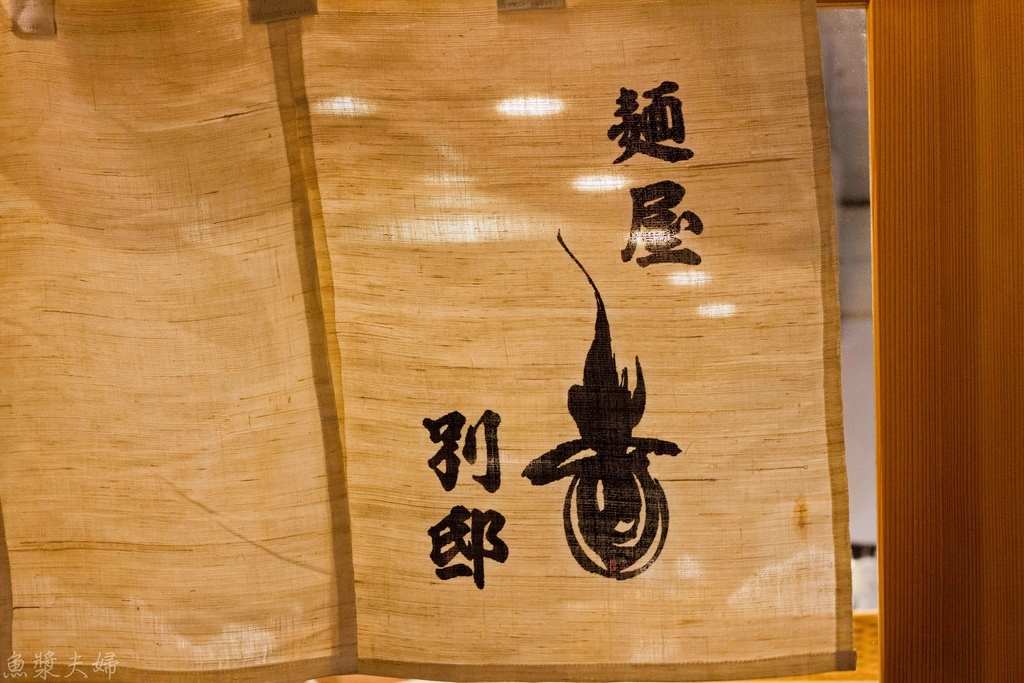 麺屋
別邸
魚漿夫婦